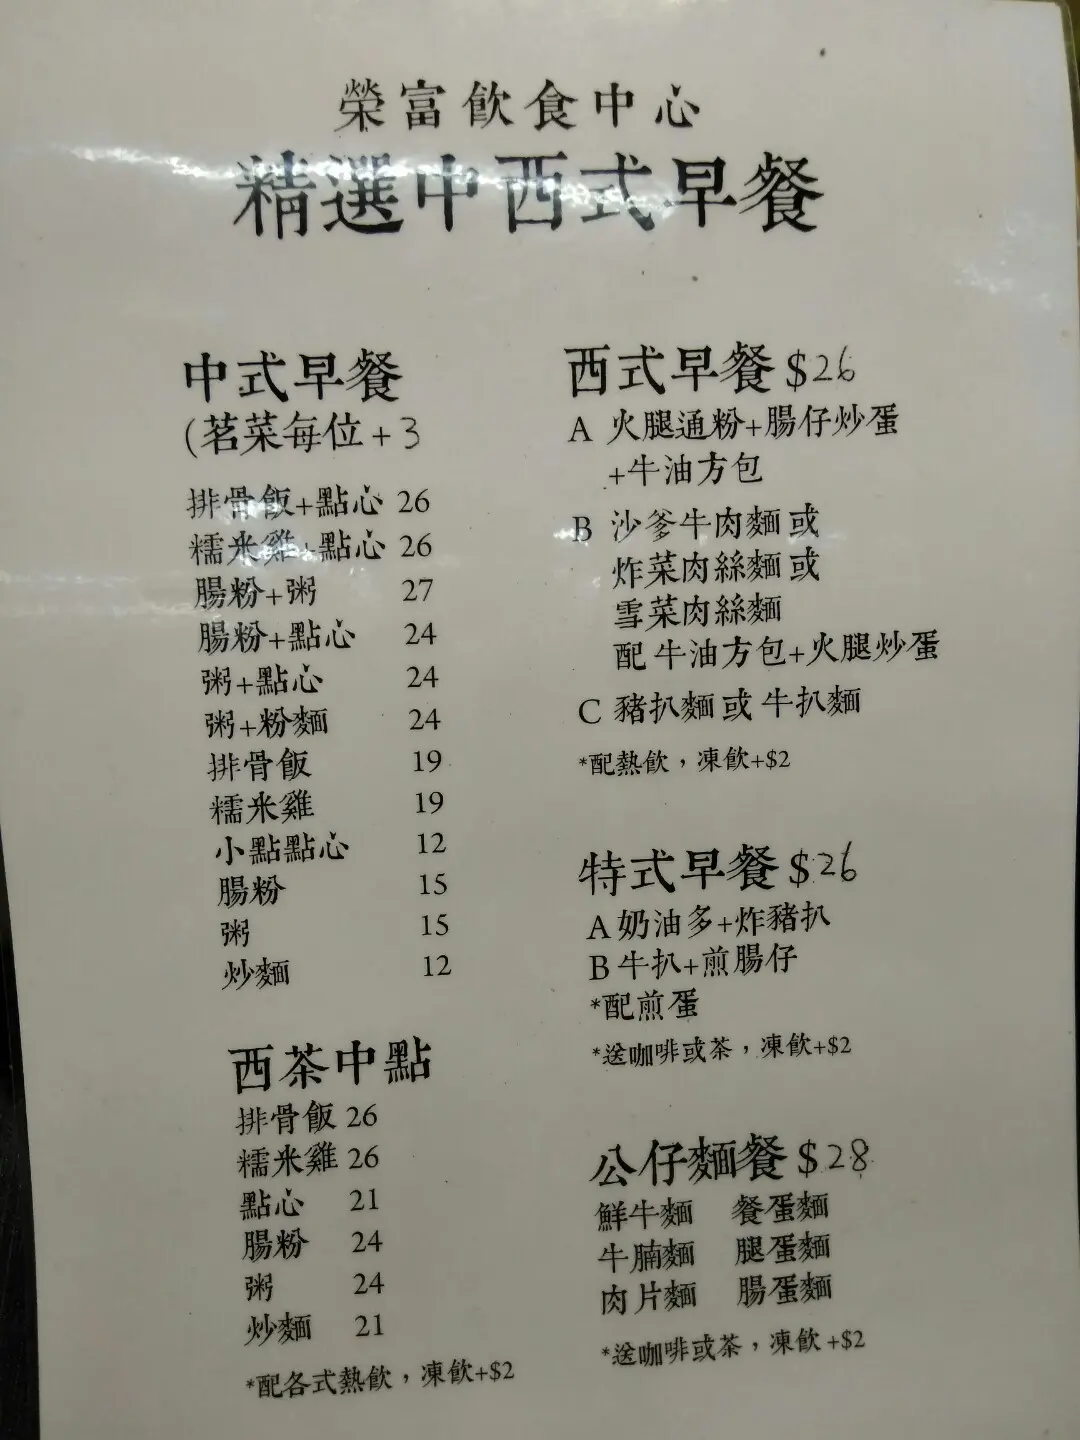 榮富飲食中心
精選中西式早餐
中式早餐
(茗菜每位 + 3
排骨飯+點心 26
糯米雞+點心 26
腸粉+粥 27
腸粉+點心 24
粥+點心 24
粥+粉麵 24
排骨飯 19
糯米雞 19
小點點心 12
腸粉 15
粥 15
炒麵 12
西茶中點
排骨飯 26
糯米雞 26
點心 21
腸粉 24
粥 24
炒麵 21
*配各式熱飲，凍飲+$2
西式早餐 $26
A 火腿通粉+腸仔炒蛋
+牛油方包
B 沙爹牛肉麵或
炸菜肉絲麵或
雪菜肉絲麵
配 牛油方包+火腿炒蛋
C 豬扒麵或 牛扒麵
*配熱飲，凍飲+$2
特式早餐 $26
A 奶油多+炸豬扒
B 牛扒+煎腸仔
*配煎蛋
*送咖啡或茶，凍飲+$2
公仔麵餐 $28
鮮牛麵 餐蛋麵
牛腩麵 腿蛋麵
肉片麵 腸蛋麵
*送咖啡或茶，凍飲 +$2